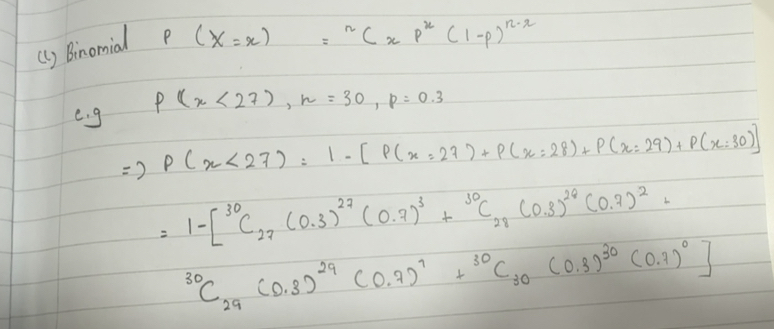 (c) Binomial P (X=x) = ⁿCₓ pˣ (1-p)ⁿ⁻ˣ
e.g P(x<27), n=30, p=0.3
=> P(x<27) = 1 - [P(x=27) + P(x=28) + P(x=29) + P(x=30)]
= 1-[³⁰C₂₇ (0.3)²⁷ (0.7)³ + ³⁰C₂₈ (0.3)²⁸ (0.7)² +
³⁰C₂₉ (0.3)²⁹ (0.7)¹ + ³⁰C₃₀ (0.3)³⁰ (0.7)⁰]